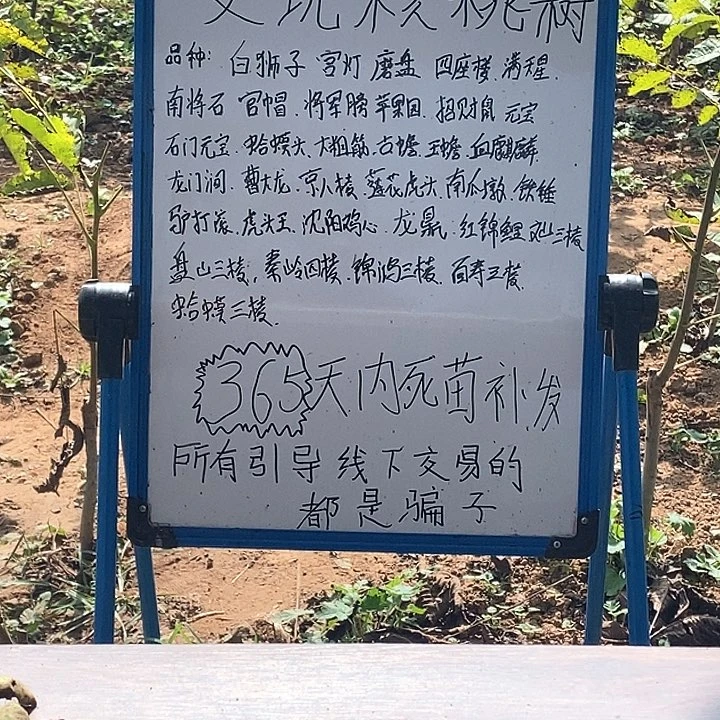 文玩核桃树
品种: 白狮子 宫灯 磨盘 四座楼 满天星.
南将石 官帽. 将军膀 苹果园. 招财鼠 元宝
石门元宝. 蛤蟆头. 大粗筋. 古蟾. 玉蟾. 血麒麟.
龙门涧. 曹大龙. 京八棱. 莲花虎头. 南瓜墩. 铁锤
驴打滚. 虎头王. 沈阳鸡心. 龙鼎. 红锦鲤. 三棱
盘山三棱. 秦岭四楼. 锦鸿三棱. 百寿三棱.
蛤蟆三棱.
365天内死苗补发
所有引导线下交易的
都是骗子